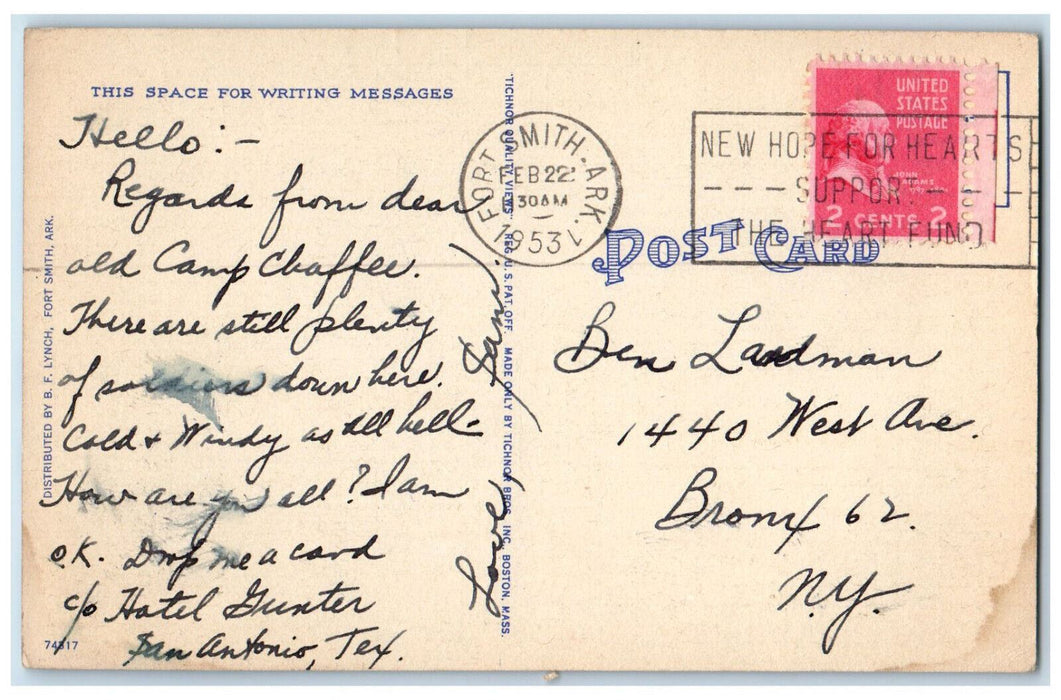 THIS SPACE FOR WRITING MESSAGES
Hello:-
Regards from dear
old Camp Chaffee.
There are still plenty
of soldiers down here.
Cold & Windy as all hell-
How are you all? I am
O.K. Drop me a card
c/o Hotel Gunter
San Antonio, Tex.
Love,
DISTRIBUTED BY B. F. LYNCH, FORT SMITH, ARK.
74517
TICHNOR QUALITY VIEWS. REG. U.S. PAT. OFF. MADE ONLY BY TICHNOR BROS. INC. BOSTON, MASS.
FORT SMITH, ARK. 1
FEB 22
30 AM
1953
NEW HOPE FOR HEARTS
SUPPOR
THE HEART FUND
UNITED
STATES
POSTAGE
JOHN
ADAMS
2 CENTS 2
POST CARD
Ben Landman
1440 West Ave.
Bronx 62.
N.Y.